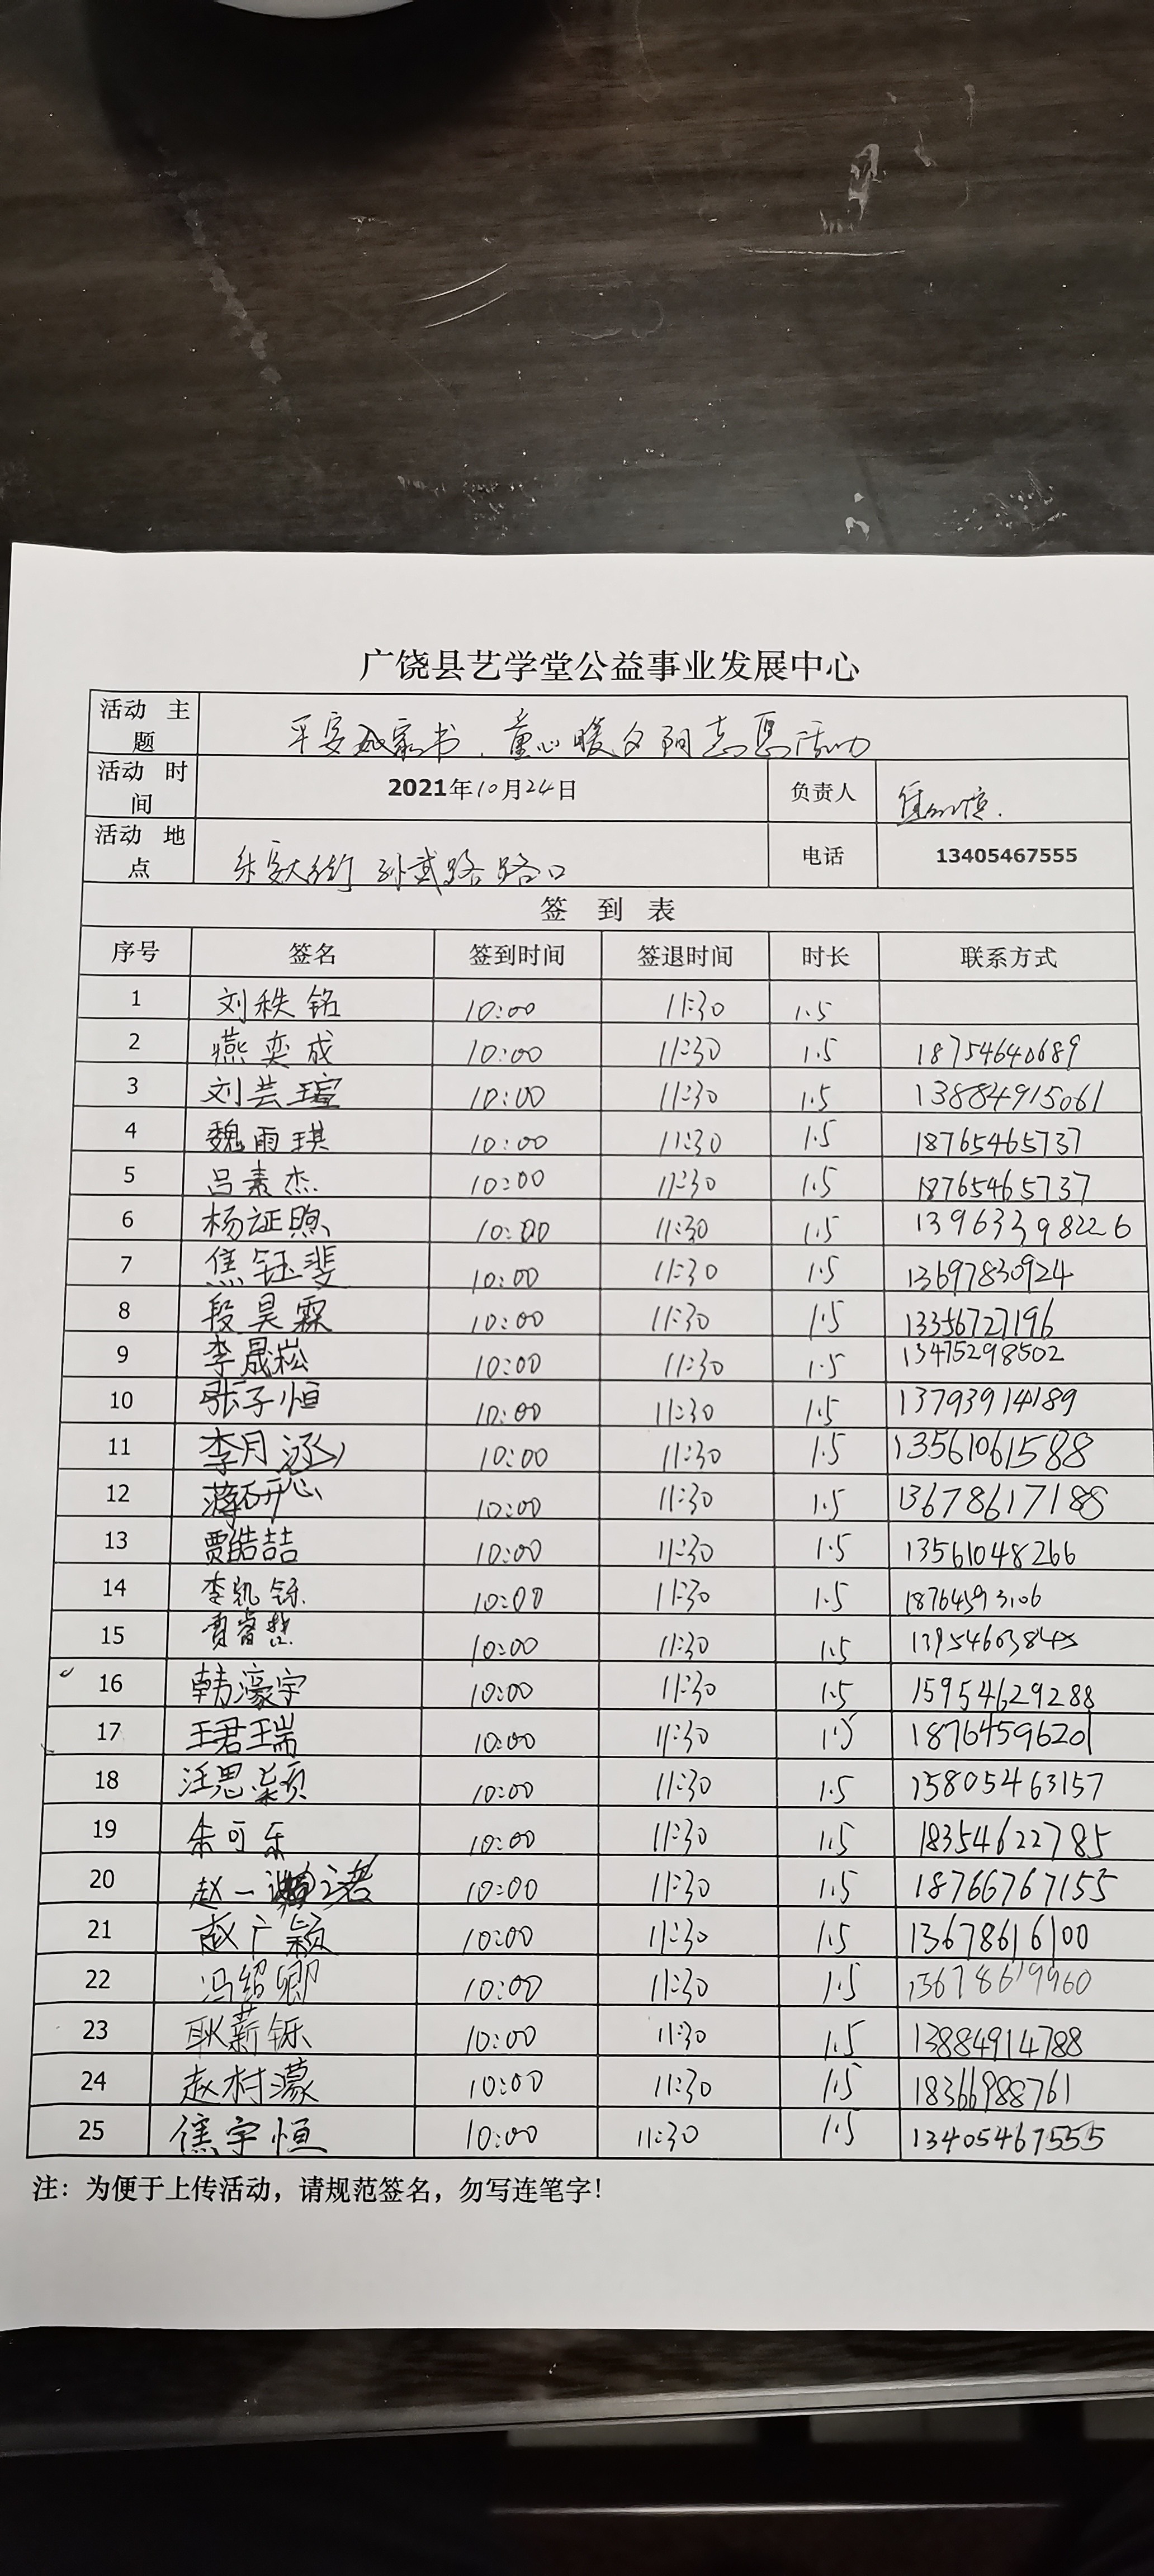 广饶县艺学堂公益事业发展中心
活动 主题 平安 家书、童心暖夕阳志愿活动
活动 时间 2021年10月24日 负责人
活动 地点 乐安大街 孙武路 路口 电话 13405467555
签 到 表
序号 签名 签到时间 签退时间 时长 联系方式
1 刘秩铭 10:00 11:30 1.5
2 燕奕成 10:00 11:30 1.5 18754640689
3 刘芸瑄 10:00 11:30 1.5 13884915061
4 魏雨琪 10:00 11:30 1.5 18765465737
5 吕素杰 10:00 11:30 1.5 18765465737
6 杨证煦 10:00 11:30 1.5 13963398226
7 焦钰斐 10:00 11:30 1.5 13697830924
8 段昊霖 10:00 11:30 1.5 13356727196
9 李晟崧 10:00 11:30 1.5 13475298502
10 张子恒 10:00 11:30 1.5 13793914189
11 李月涵 10:00 11:30 1.5 13561061588
12 蒋研心 10:00 11:30 1.5 13678617188
13 贾皓喆 10:00 11:30 1.5 13561048266
14 李凯铄 10:00 11:30 1.5 18764593106
15 10:00 11:30 1.5
16 韩濠宇 10:00 11:30 1.5 15954629288
17 王君瑞 10:00 11:30 1.5 18764596201
18 汪思颖 10:00 11:30 1.5 15805463157
19 余可乐 10:00 11:30 1.5 18354622785
20 赵一诺 10:00 11:30 1.5 18766767155
21 赵广颖 10:00 11:30 1.5 13678616100
22 冯绍卿 10:00 11:30 1.5 13678619960
23 耿薪铄 10:00 11:30 1.5 13884914788
24 赵村濛 10:00 11:30 1.5 18366988761
25 焦宇恒 10:00 11:30 1.5 13405467555
注：为便于上传活动，请规范签名，勿写连笔字！